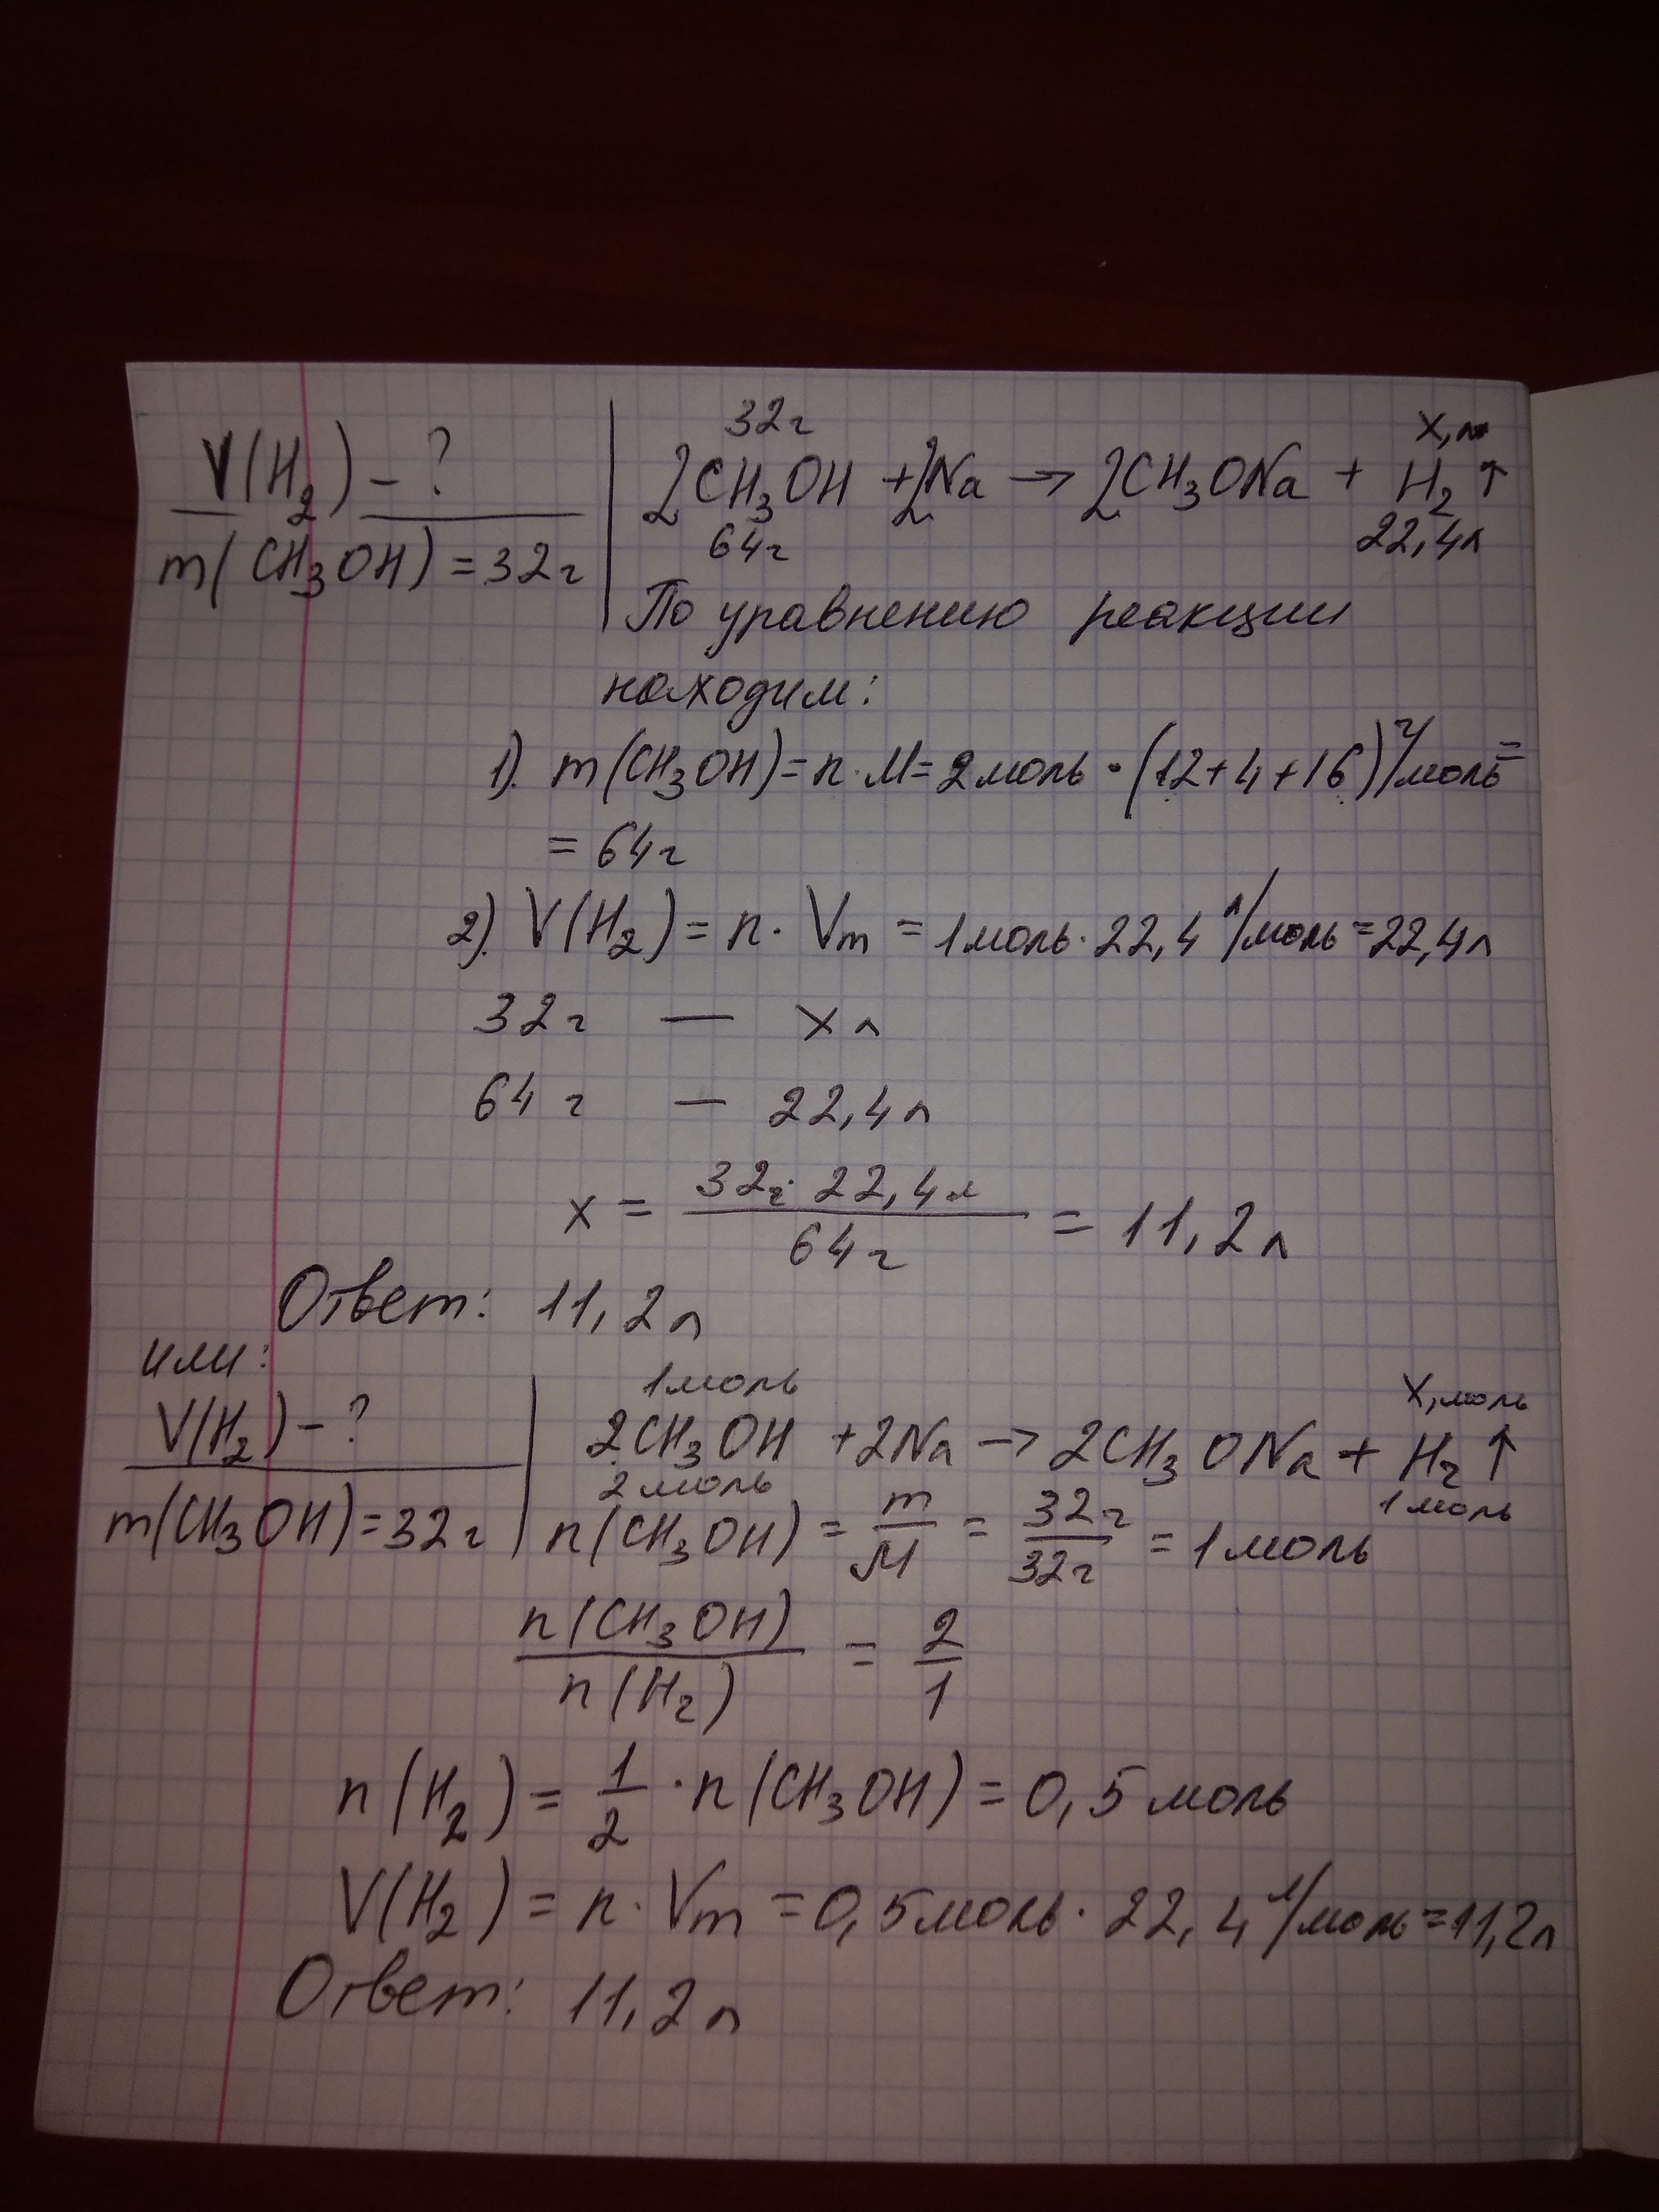 V(H₂) - ?
m(CH₃OH) = 32г
32г х, л
2CH₃OH + 2Na → 2CH₃ONa + H₂↑
64г 22,4л
По уравнению реакции
находим:
1). m(CH₃OH) = n · M = 2 моль · (12+4+16) г/моль =
= 64г
2). V(H₂) = n · Vm = 1 моль · 22,4 л/моль = 22,4л
32г — х л
64г — 22,4л
x = (32г · 22,4л)/64г = 11,2л
Ответ: 11,2л
или:
V(H₂) - ?
m(CH₃OH) = 32г
1моль х, моль
2CH₃OH + 2Na → 2CH₃ONa + H₂↑
2 моль 1 моль
n(CH₃OH) = m/M = 32г/32г = 1 моль
n(CH₃OH)/n(H₂) = 2/1
n(H₂) = 1/2 · n(CH₃OH) = 0,5 моль
V(H₂) = n · Vm = 0,5 моль · 22,4 л/моль = 11,2л
Ответ: 11,2л